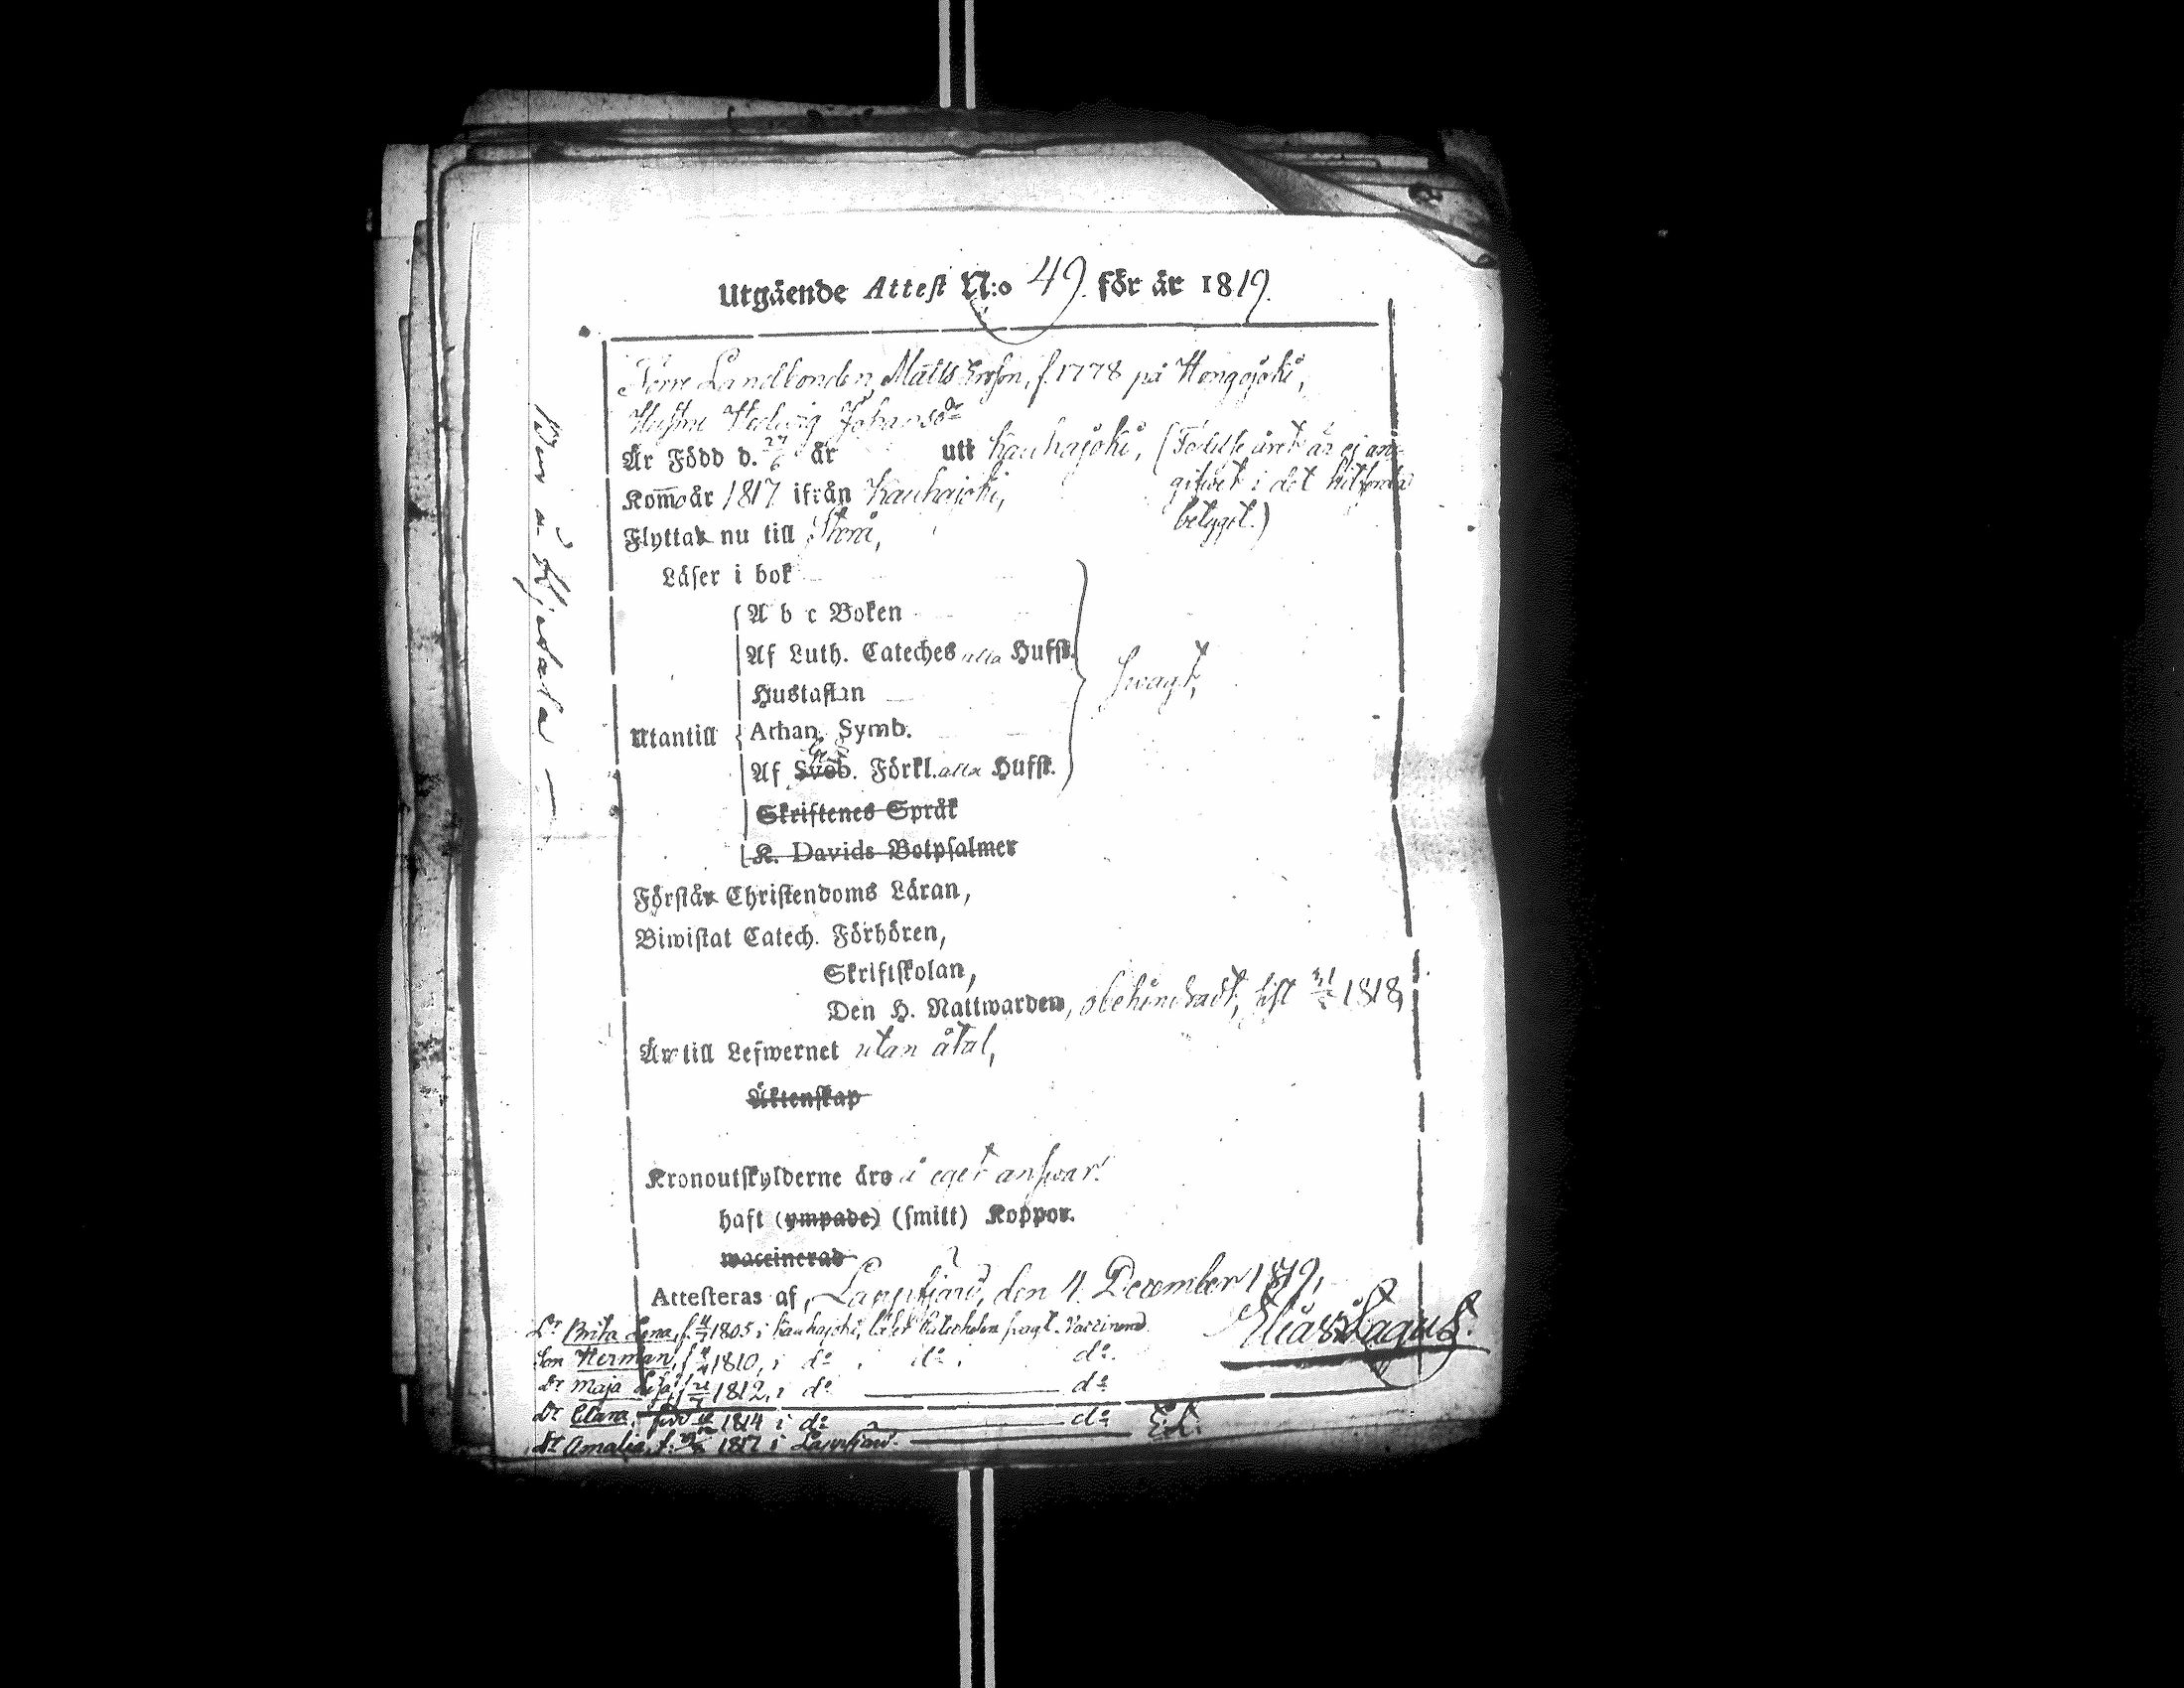 Utgående Attest N:o 49. för år 1819.
Förre Landbonden Matts Ersson, f. 1778 på Hongojoki,
Hustru Hedvig Johansdr
Är Född d. 27/6 år utt Kauhajoki, (Födelse året är ej an-
gifwet i det hitförda
betyget.)
Kom år 1817 ifrån Kauhajoki,
Flytta nu till Storå,
Läser i bok
Utantill
A b c Boken
Af Luth. Cateches alla Hufst.
Hustaflan
Athan. Symb.
Af Sveb. Förkl. alla Hufst.
swagt,
Skriftenes Språk
K. Davids Botpsalmer
Förstår Christendoms Läran,
Biwistat Catech. Förhören,
Skriftskolan,
Den H. Nattwarden, obehindradt, sist 1818,
Är till Lefwernet utan åtal,
Äktenskap
Kronoutskylderne äro i eget answar.
haft (ympade) (smitt) Koppor.
waccinerad
Attesteras af, Lappfjärd, den 4. December 1819,
Elias Lagus.
Dr Brita Lena, f. 1805 i Kauhajoki, läser Katechesen swagt. Vaccinerad
Son Herman, f. 1810, i do do do.
Dr Maja Lisa, f. 1812, i do do
Dr Clara, född 1814 i do do
Dr Amalia, f. 1817 i Lappfjärd. E.L.